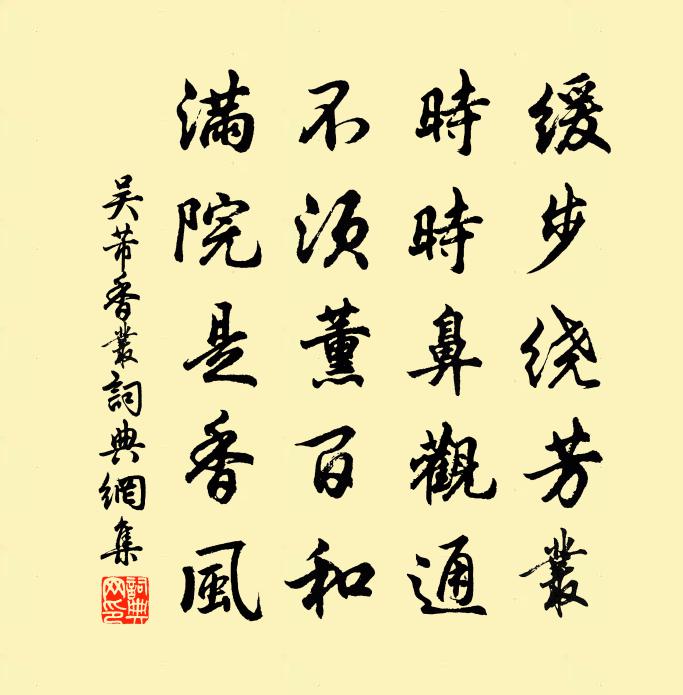 缓步绕芳叢
時時鼻觀通
不須薰百和
滿院是香風
吴芾香叢詞典網集
詞典網印